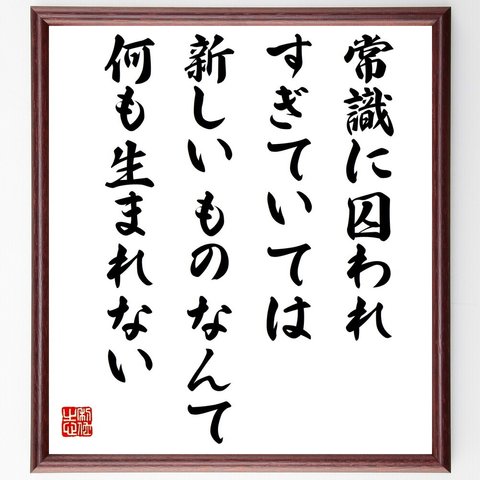 常識に囚われ
すぎていては
新しいものなんて
何も生まれない